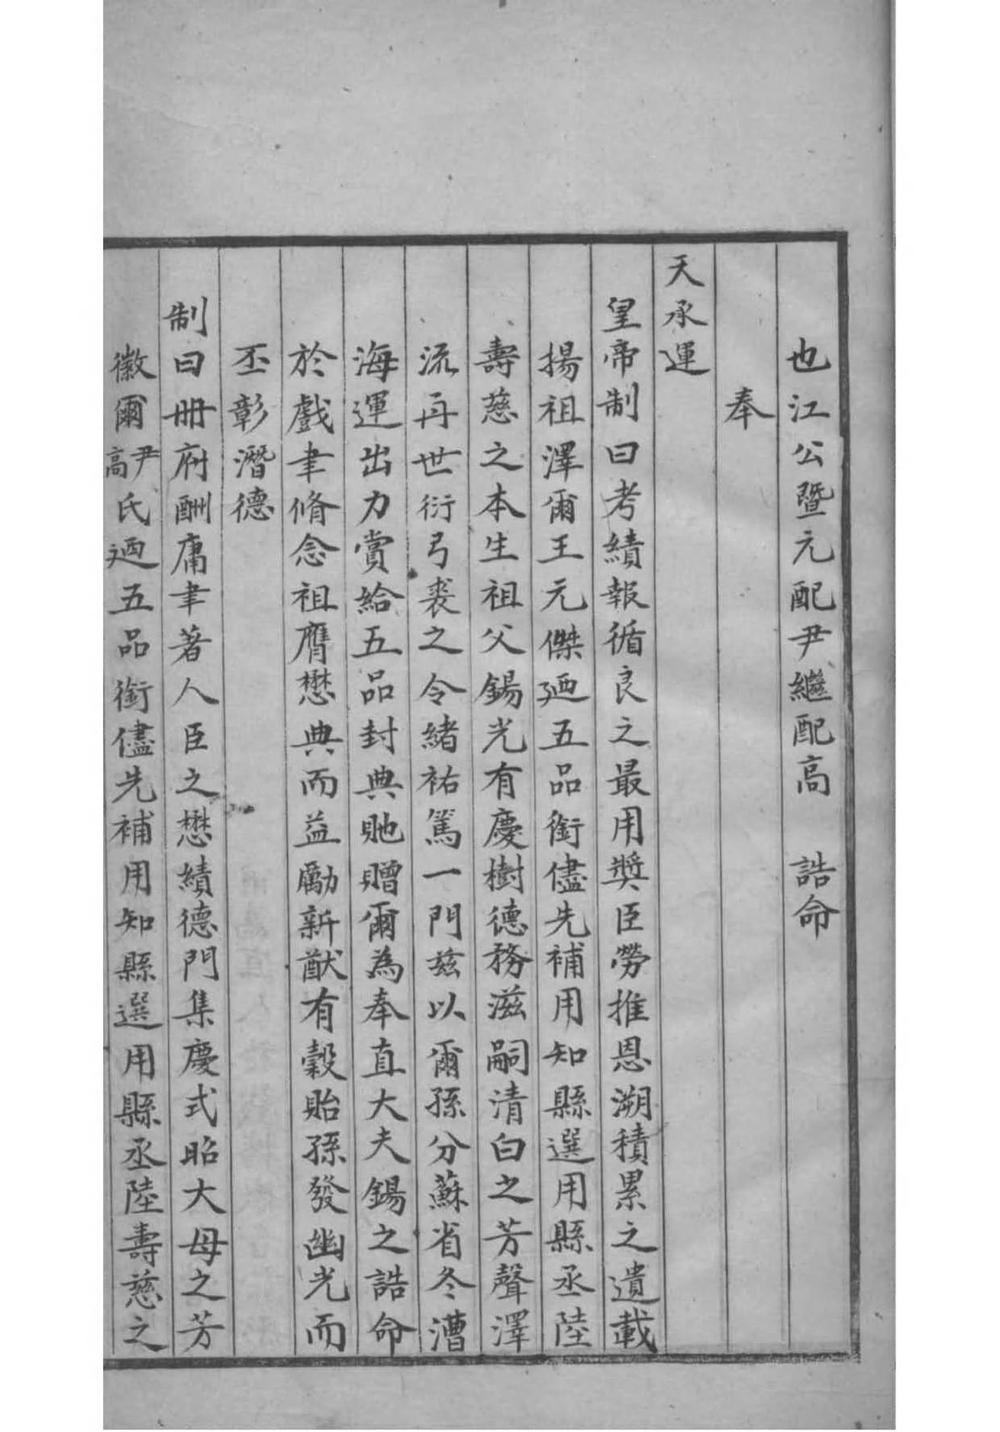 也江公暨元配尹繼配高　誥命
奉
天承運
皇帝制曰考績報循良之最用獎臣勞推恩溯積累之遺載
揚祖澤爾王元傑廼五品銜儘先補用知縣選用縣丞陸
壽慈之本生祖父錫光有慶樹德務滋嗣清白之芳聲澤
流再世衍弓裘之令緒祐篤一門茲以爾孫分蘇省冬漕
海運出力賞給五品封典貤贈爾為奉直大夫錫之誥命
於戲聿脩念祖膺懋典而益勵新猷有穀貽孫發幽光而
丕彰潛德
制曰冊府酬庸聿著人臣之懋績德門集慶式昭大母之芳
徽爾尹高氏廼五品銜儘先補用知縣選用縣丞陸壽慈之